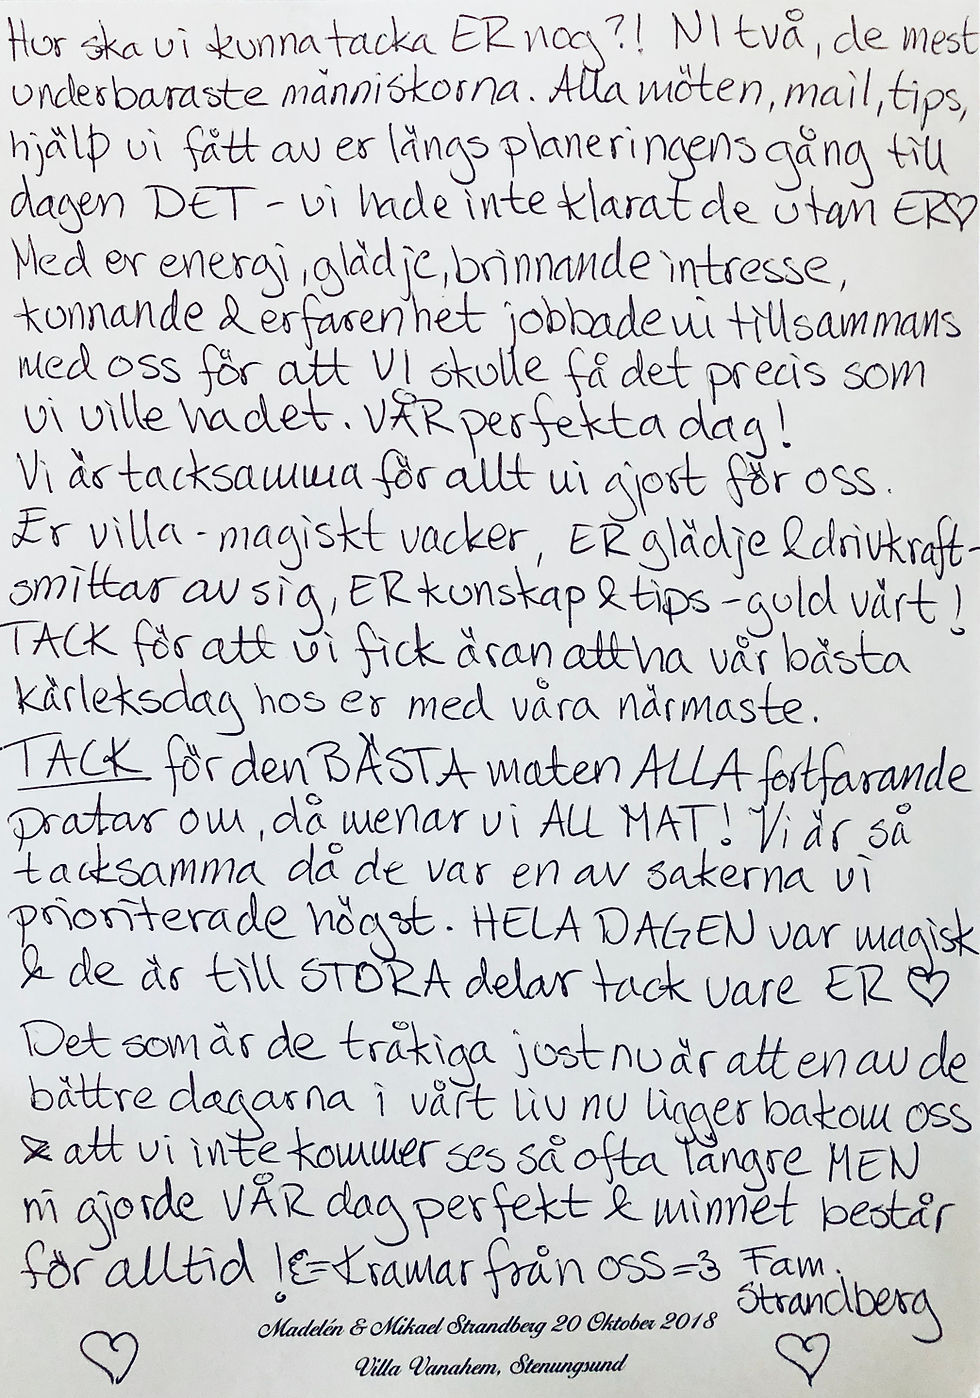 Hur ska vi kunna tacka ER nog?! NI två, de mest
underbaraste människorna. Alla möten, mail, tips,
hjälp vi fått av er längs planeringens gång till
dagen DET - vi hade inte klarat de utan ER♡
Med er energi, glädje, brinnande intresse,
kunnande & erfarenhet jobbade ni tillsammans
med oss för att VI skulle få det precis som
vi ville ha det. VÅR perfekta dag!
Vi är tacksamma för allt ni gjort för oss.
Er villa - magiskt vacker, ER glädje & drivkraft-
smittar av sig, ER kunskap & tips - guld värt!
TACK för att vi fick äran att ha vår bästa
kärleksdag hos er med våra närmaste.
TACK för den BÄSTA maten ALLA fortfarande
pratar om, då menar vi ALL MAT! Vi är så
tacksamma då de var en av sakerna vi
prioriterade högst. HELA DAGEN var magisk
& de är till STORA delar tack vare ER ♡
Det som är de tråkiga just nu är att en av de
bättre dagarna i vårt liv nu ligger bakom oss
& att vi inte kommer ses så ofta längre MEN
ni gjorde VÅR dag perfekt & minnet består
för alltid! ε= Kramar från oss =3 Fam.
Strandberg
Madelén & Mikael Strandberg 20 Oktober 2018
Villa Vanahem, Stenungsund